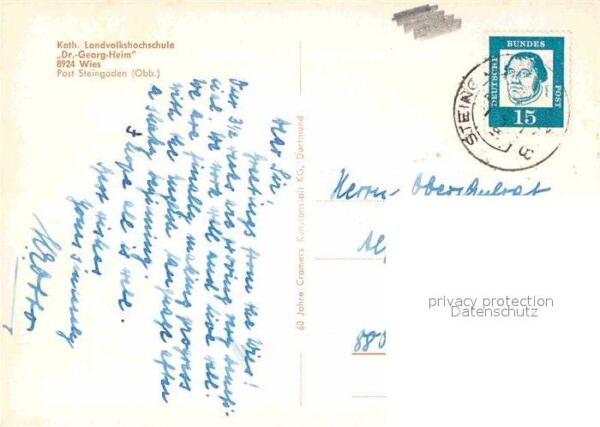 Kath. Landvolkshochschule
„Dr.-Georg-Heim"
8924 Wies
Post Steingaden (Obb.)
Dear Sir!
Greetings from the Wies!
Our 3½ weeks are proving very beauti-
We work well and live well.
We are finally making progress
with the English language after
a shaky beginning.
I hope all is well.
Best wishes
Yours sincerely
60 Jahre Cramers Kunstanstalt KG, Dortmund
DEUTSCHE
BUNDES
POST
15
STEING
8
Herrn Oberschulrat
880
privacy protection
Datenschutz